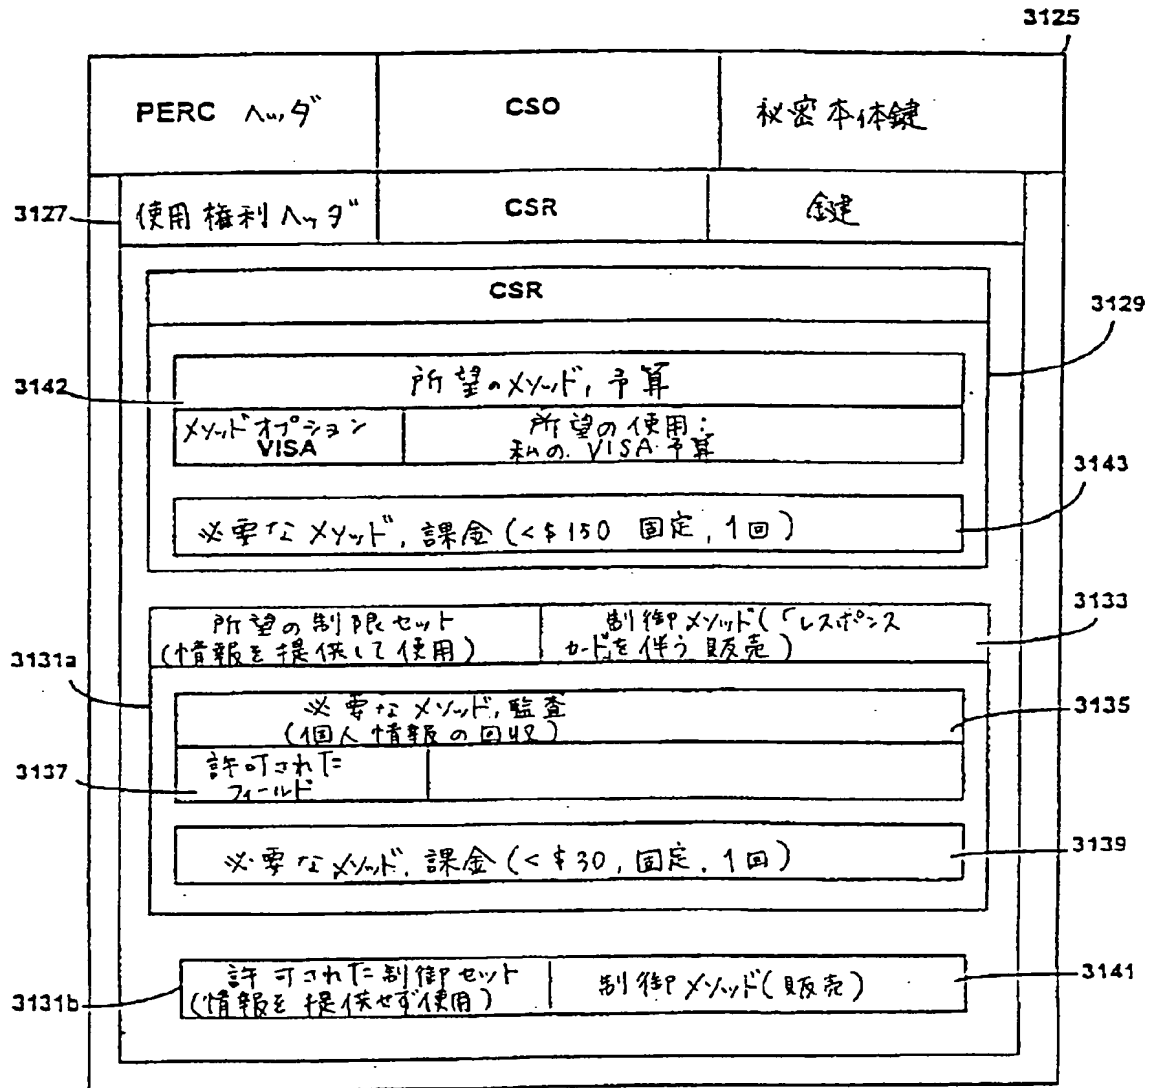 3125
PERC ヘッダ CSO 秘密本体鍵
3127 使用権利ヘッダ CSR 鍵
CSR
3129
3142 所望のメソッド, 予算
メソッドオプション
VISA
所望の使用:
私の VISA 予算
3143
必要なメソッド, 課金 (<$150 固定, 1回)
3133
所望の制限セット
(情報を提供して使用)
制御メソッド(「レスポンス
カード」を伴う販売)
3131a
必要なメソッド, 監査
(個人情報の回収)
3135
3137 許可された
フィールド
必要なメソッド, 課金 (<$30, 固定, 1回)
3139
許可された制御セット
(情報を提供せず使用)
制御メソッド(販売)
3141
3131b